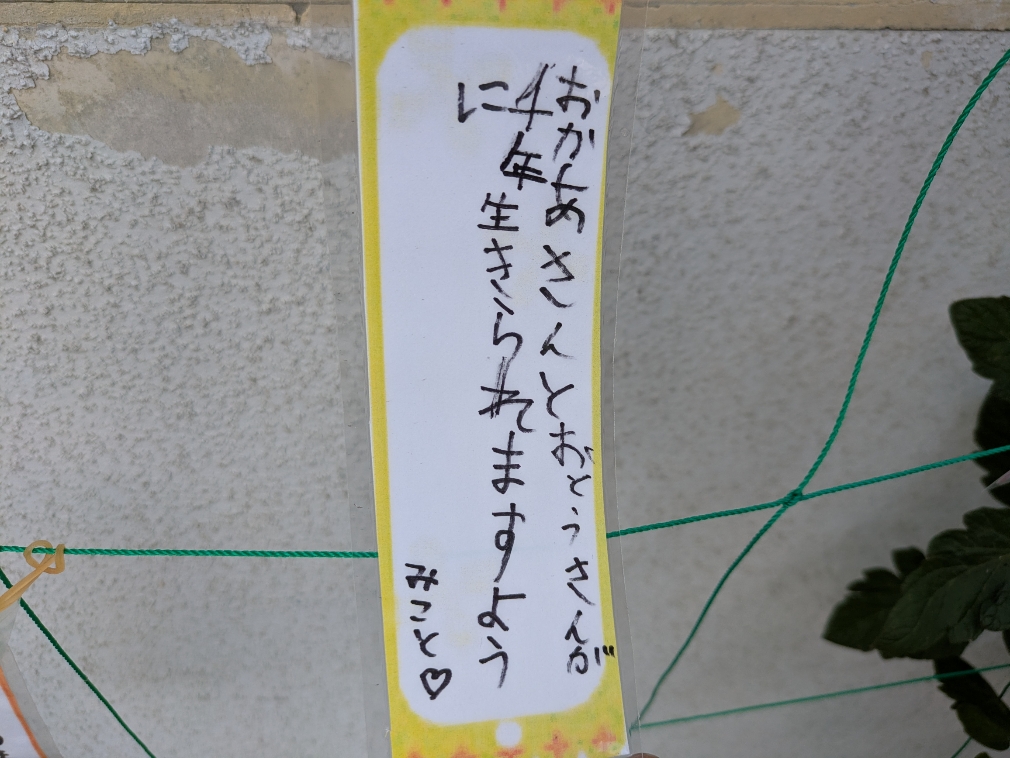 おかあさんとおとうさんが
千年生きられますよう
に
みこと♡